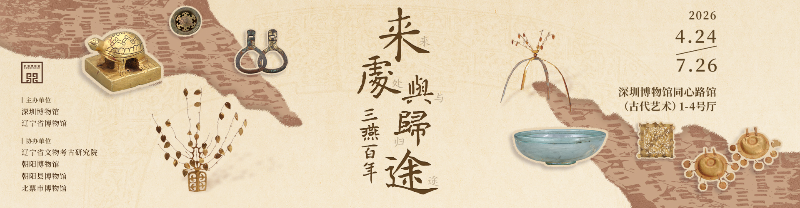 主办单位
深圳博物馆
辽宁省博物馆
协办单位
辽宁省文物考古研究院
朝阳博物馆
朝阳县博物馆
北票市博物馆
来處與歸途
来处与归途
三燕百年
2026
4.24
7.26
深圳博物馆同心路馆
（古代艺术）1-4号厅